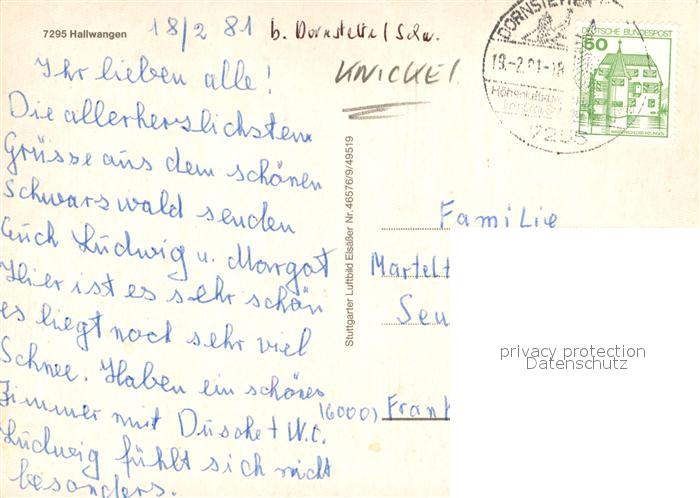 7295 Hallwangen
18/2 81 b. Dornstetten/Schw.
KNICKEL
Ihr lieben alle!
Die allerherzlichsten
Grüsse aus dem schönen
Schwarzwald senden
Euch Ludwig u. Margot
Hier ist es sehr schön
es liegt noch sehr viel
Schnee. Haben ein schönes
Zimmer mit Dusche + W.C.
Ludwig fühlt sich nicht
besonders.
Stuttgarter Luftbild Elsäßer Nr. 46576/9/49519
DORNSTETTEN
18.-2.81-18
7295
DEUTSCHE BUNDESPOST
50
WASSERSCHLOSS INZLINGEN
Familie
Martelt
Seu
(6000) Frank
privacy protection
Datenschutz